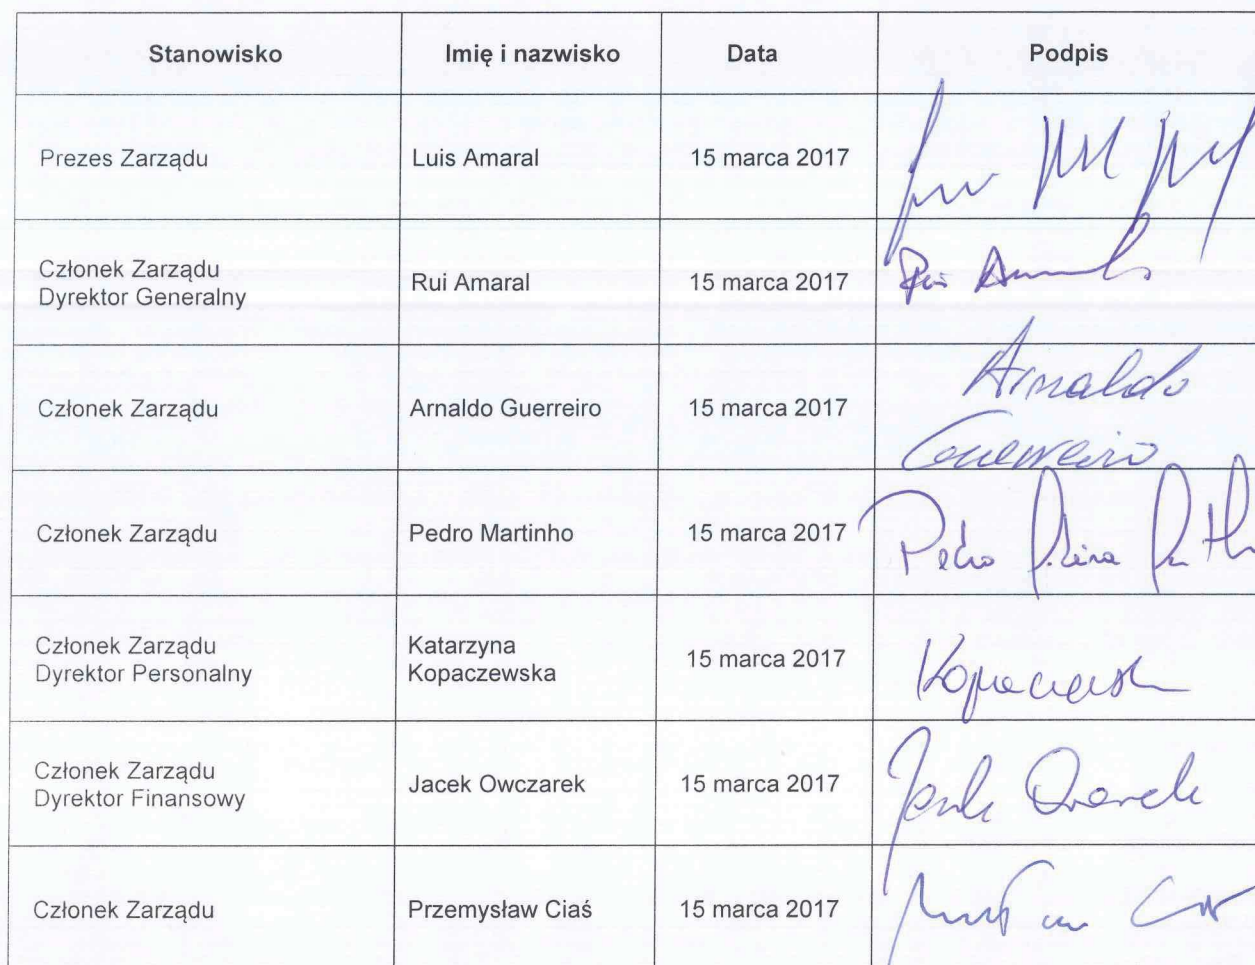 Stanowisko Imię i nazwisko Data Podpis
Prezes Zarządu Luis Amaral 15 marca 2017
Członek Zarządu
Dyrektor Generalny Rui Amaral 15 marca 2017 Rui Amaral
Członek Zarządu Arnaldo Guerreiro 15 marca 2017 Arnaldo
Guerreiro
Członek Zarządu Pedro Martinho 15 marca 2017 Pedro
Członek Zarządu
Dyrektor Personalny Katarzyna
Kopaczewska 15 marca 2017 Kopaczewska
Członek Zarządu
Dyrektor Finansowy Jacek Owczarek 15 marca 2017 Jacek Owczarek
Członek Zarządu Przemysław Ciaś 15 marca 2017